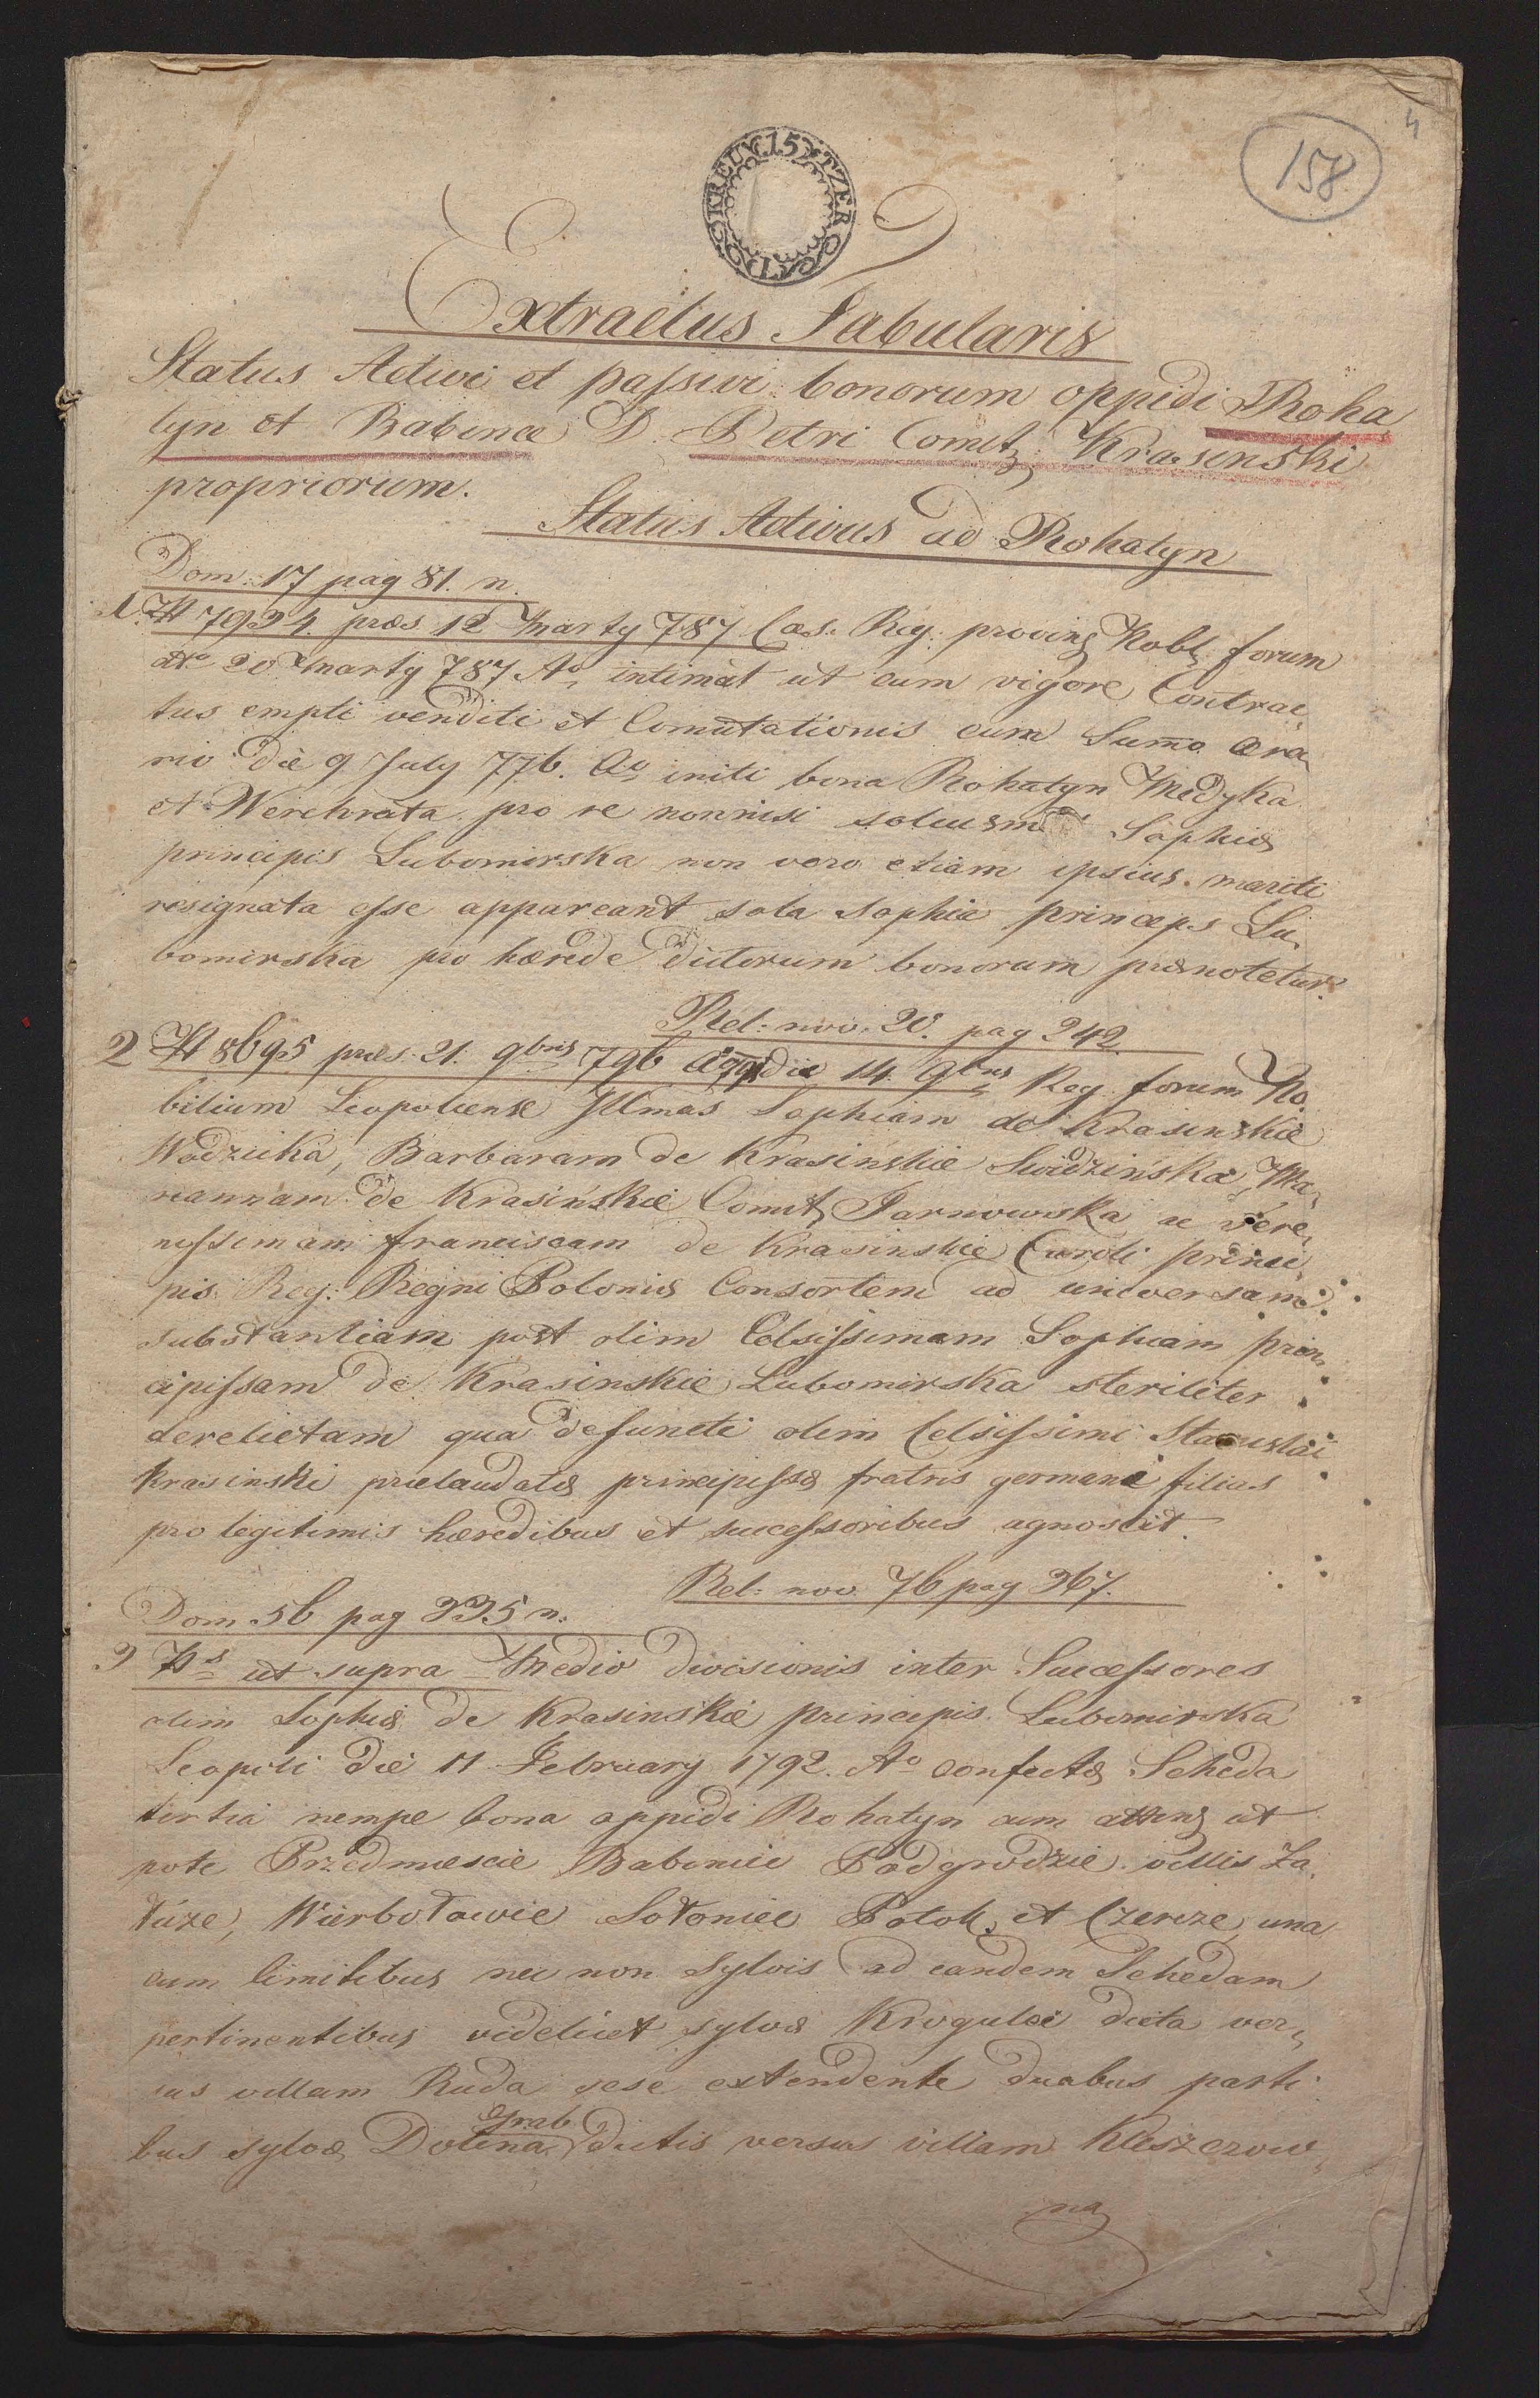 4
158
15 KREUTZER
Extractus Tabularis
Status Activi et passivi bonorum oppidi Roha
tyn et Babince D. Petri Comit, Krasinski
propriorum.
Status Activus ad Rohatyn
Dom: 17 pag 81. n.
1. N 7924. præs 12 Marty 787 Cæs. Reg: provinc Nobl, forum
dto 20 Marty 787 Ao, intimat ut cum vigore Contrac,
tus empti venditi et Comutationis cum Sumo æra,
rio die 9 July 776. Ao initi bona Rohatyn Medyka
et Werchrata pro re nonnisi Sophiæ
principis Lubomirska non vero etiam ipsius mariti
resignata esse appareant sola Sophia princeps Lu,
bomirska pro hærede dictorum bonorum prænotetur.
Rel: nov. 20. pag 242
2 N 8695 præs. 21. 9bris 796 die 14. 9bris Reg forum No,
bilium Leopoliense Illmas Sophiam de Krasinskie
Wodzicka, Barbaram de Krasinskie Swidzińska, Ma,
riannam de Krasińskie Comit, Tarnowska ac Sere,
nissimam franciscam de Krasinskie Caroli princi,
pis Reg: Regni Poloniæ Consortem ad universam
substantiam post olim Celsissimam Sophiam prin,
cipissam de Krasinskie Lubomirska steriliter
derelictam qua defuncti olim Celsissimi Stanislai
Krasinski prælaudatæ principissæ fratris germani filias
pro legitimis hæredibus et successoribus agnoscit.
Rel: nov 76 pag 367.
Dom 56 pag 335 n.
3 Ns ut supra Medio divisionis inter Successores
olim Sophiæ de Krasinskie principis Lubomirska
Leopoli die 11 February 1792. Ao confectæ Scheda
tertia nempe bona oppidi Rohatyn cum attinc, ut
pote Przedmiescie Babinice Podgrodzie villis Za,
łuże, Wierbołowie Sołoniec Potok, et Czercze, una
cum limitibus nec non sylvis ad eandem Schedam
pertinentibus videlicet sylvæ Krogulec dicta ver,
sus villam Ruda sese extendente duabus parti
bus sylvæ Dolina Grab dictis versus villam Kleszczow,
na